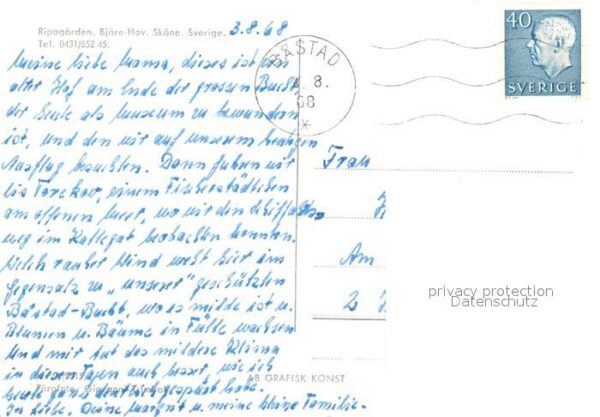 Ripagården. Bjäre-Hov. Skåne. Sverige.
Tel. 0431/652 45.
3.8.68
Meine liebe Mama, dieses ist ein
alter Hof am Ende der grossen Bucht,
der heute als museum zu bewundern
ist, und den wir auf unserem heutigen
Ausflug besuchten. Dann fuhren wir
bis Torekov, einem Fischerstädtchen
am offenen meer, wo wir den Schiffahrts
weg im Kattegat beobachten konnten.
Welch rauher Wind weht hier im
Gegensatz zu „unserer" geschützten
Båstad-Bucht, wo es milde ist u.
Blumen u. Bäume in Fülle wachsen
Und mir tut das mildere Klima
in diesen Tagen auch besser, wie ich
heute ganz deutlich gespürt habe.
In Liebe. Deine Margrit u. meine kleine Familie.
Färgfoto:
AB GRAFISK KONST
BÅSTAD
4.8.
68
40
SVERIGE
Frau
Am
2
privacy protection
Datenschutz